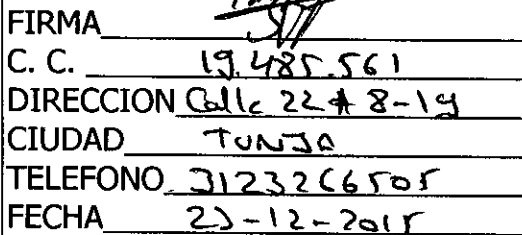 FIRMA
C. C. 19.485.561
DIRECCION Calle 22 # 8-19
CIUDAD TUNJA
TELEFONO 3123266505
FECHA 23-12-2015